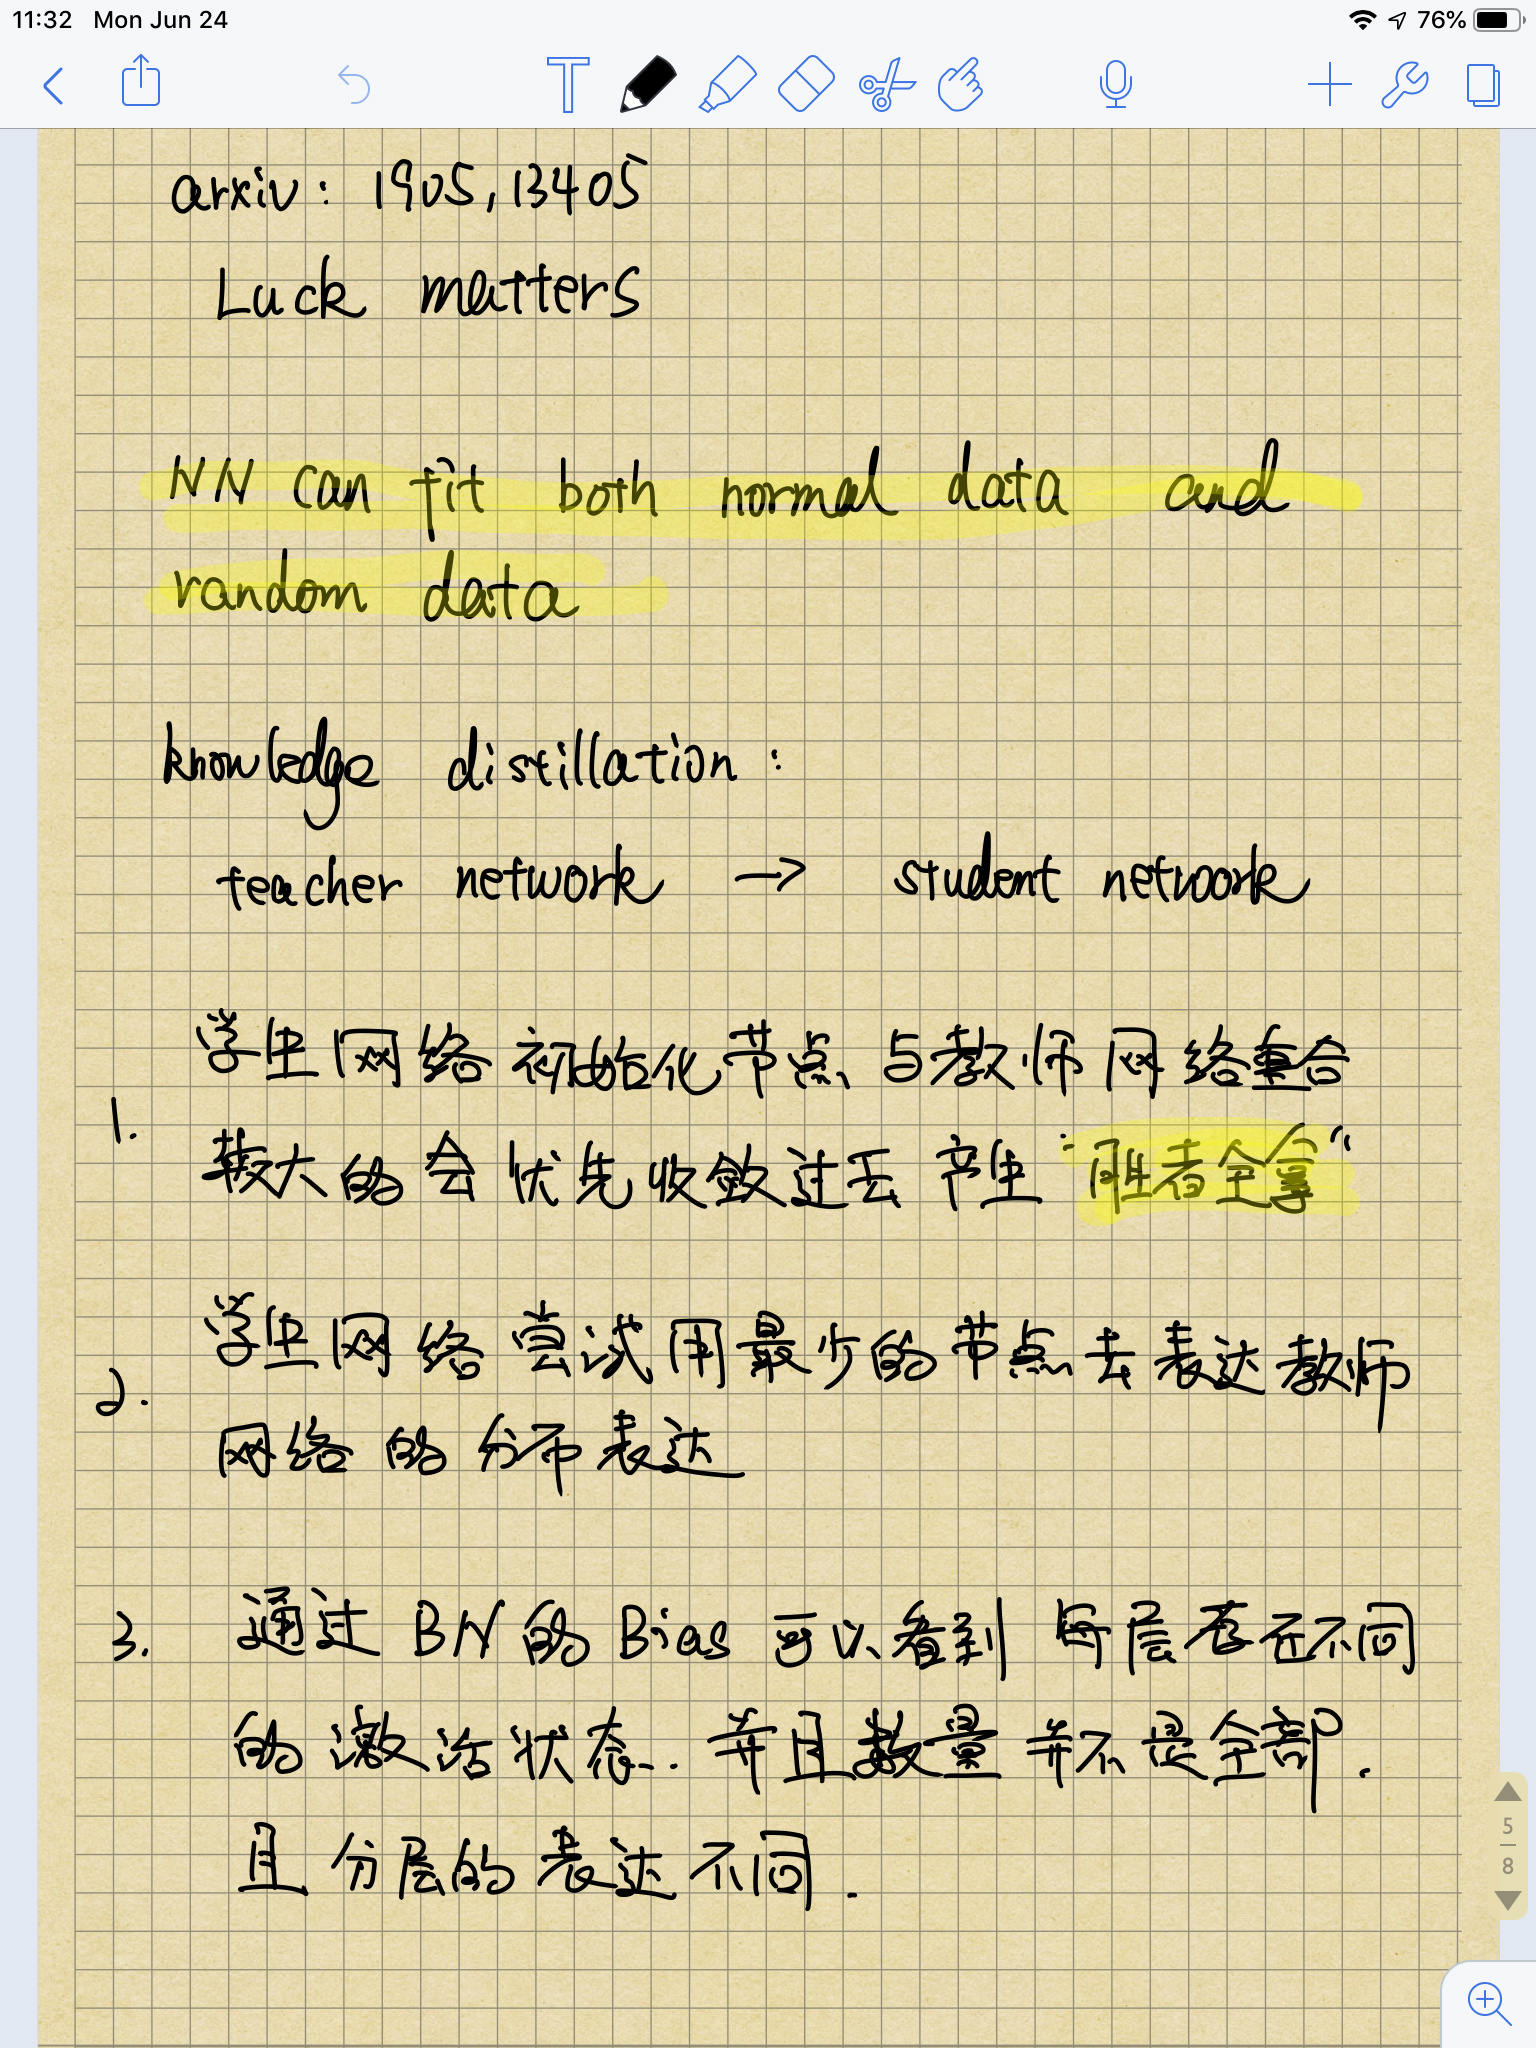 11:32 Mon Jun 24 76%
arxiv: 1905,13405
Luck matters
NN can fit both normal data and
random data
knowledge distillation:
teacher network → student network
学生网络初始化节点与教师网络重合
1. 较大的会优先收敛过去 产生 "胜者全拿"
学生网络尝试用最少的节点去表达教师
2. 网络的分布表达
3. 通过BN的Bias可以看到每层存在不同
的激活状态.. 并且数量并不是全部.
且分层的表达不同.
5
8